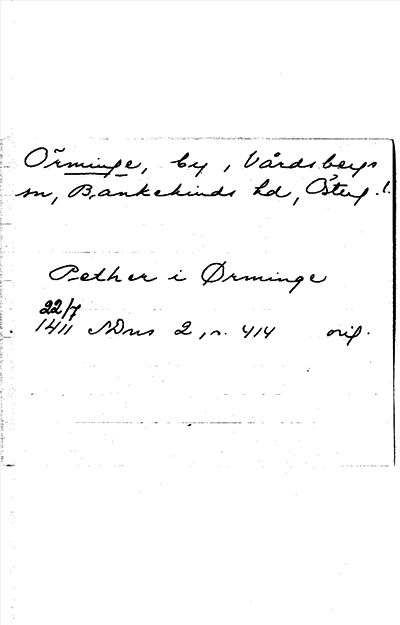 Örminge, by, Vårdsbergs
sn, Bankekinds hd, Österg. l.
Pether i Ørminge
22/7
1411 SDns 2, n. 414 orig.